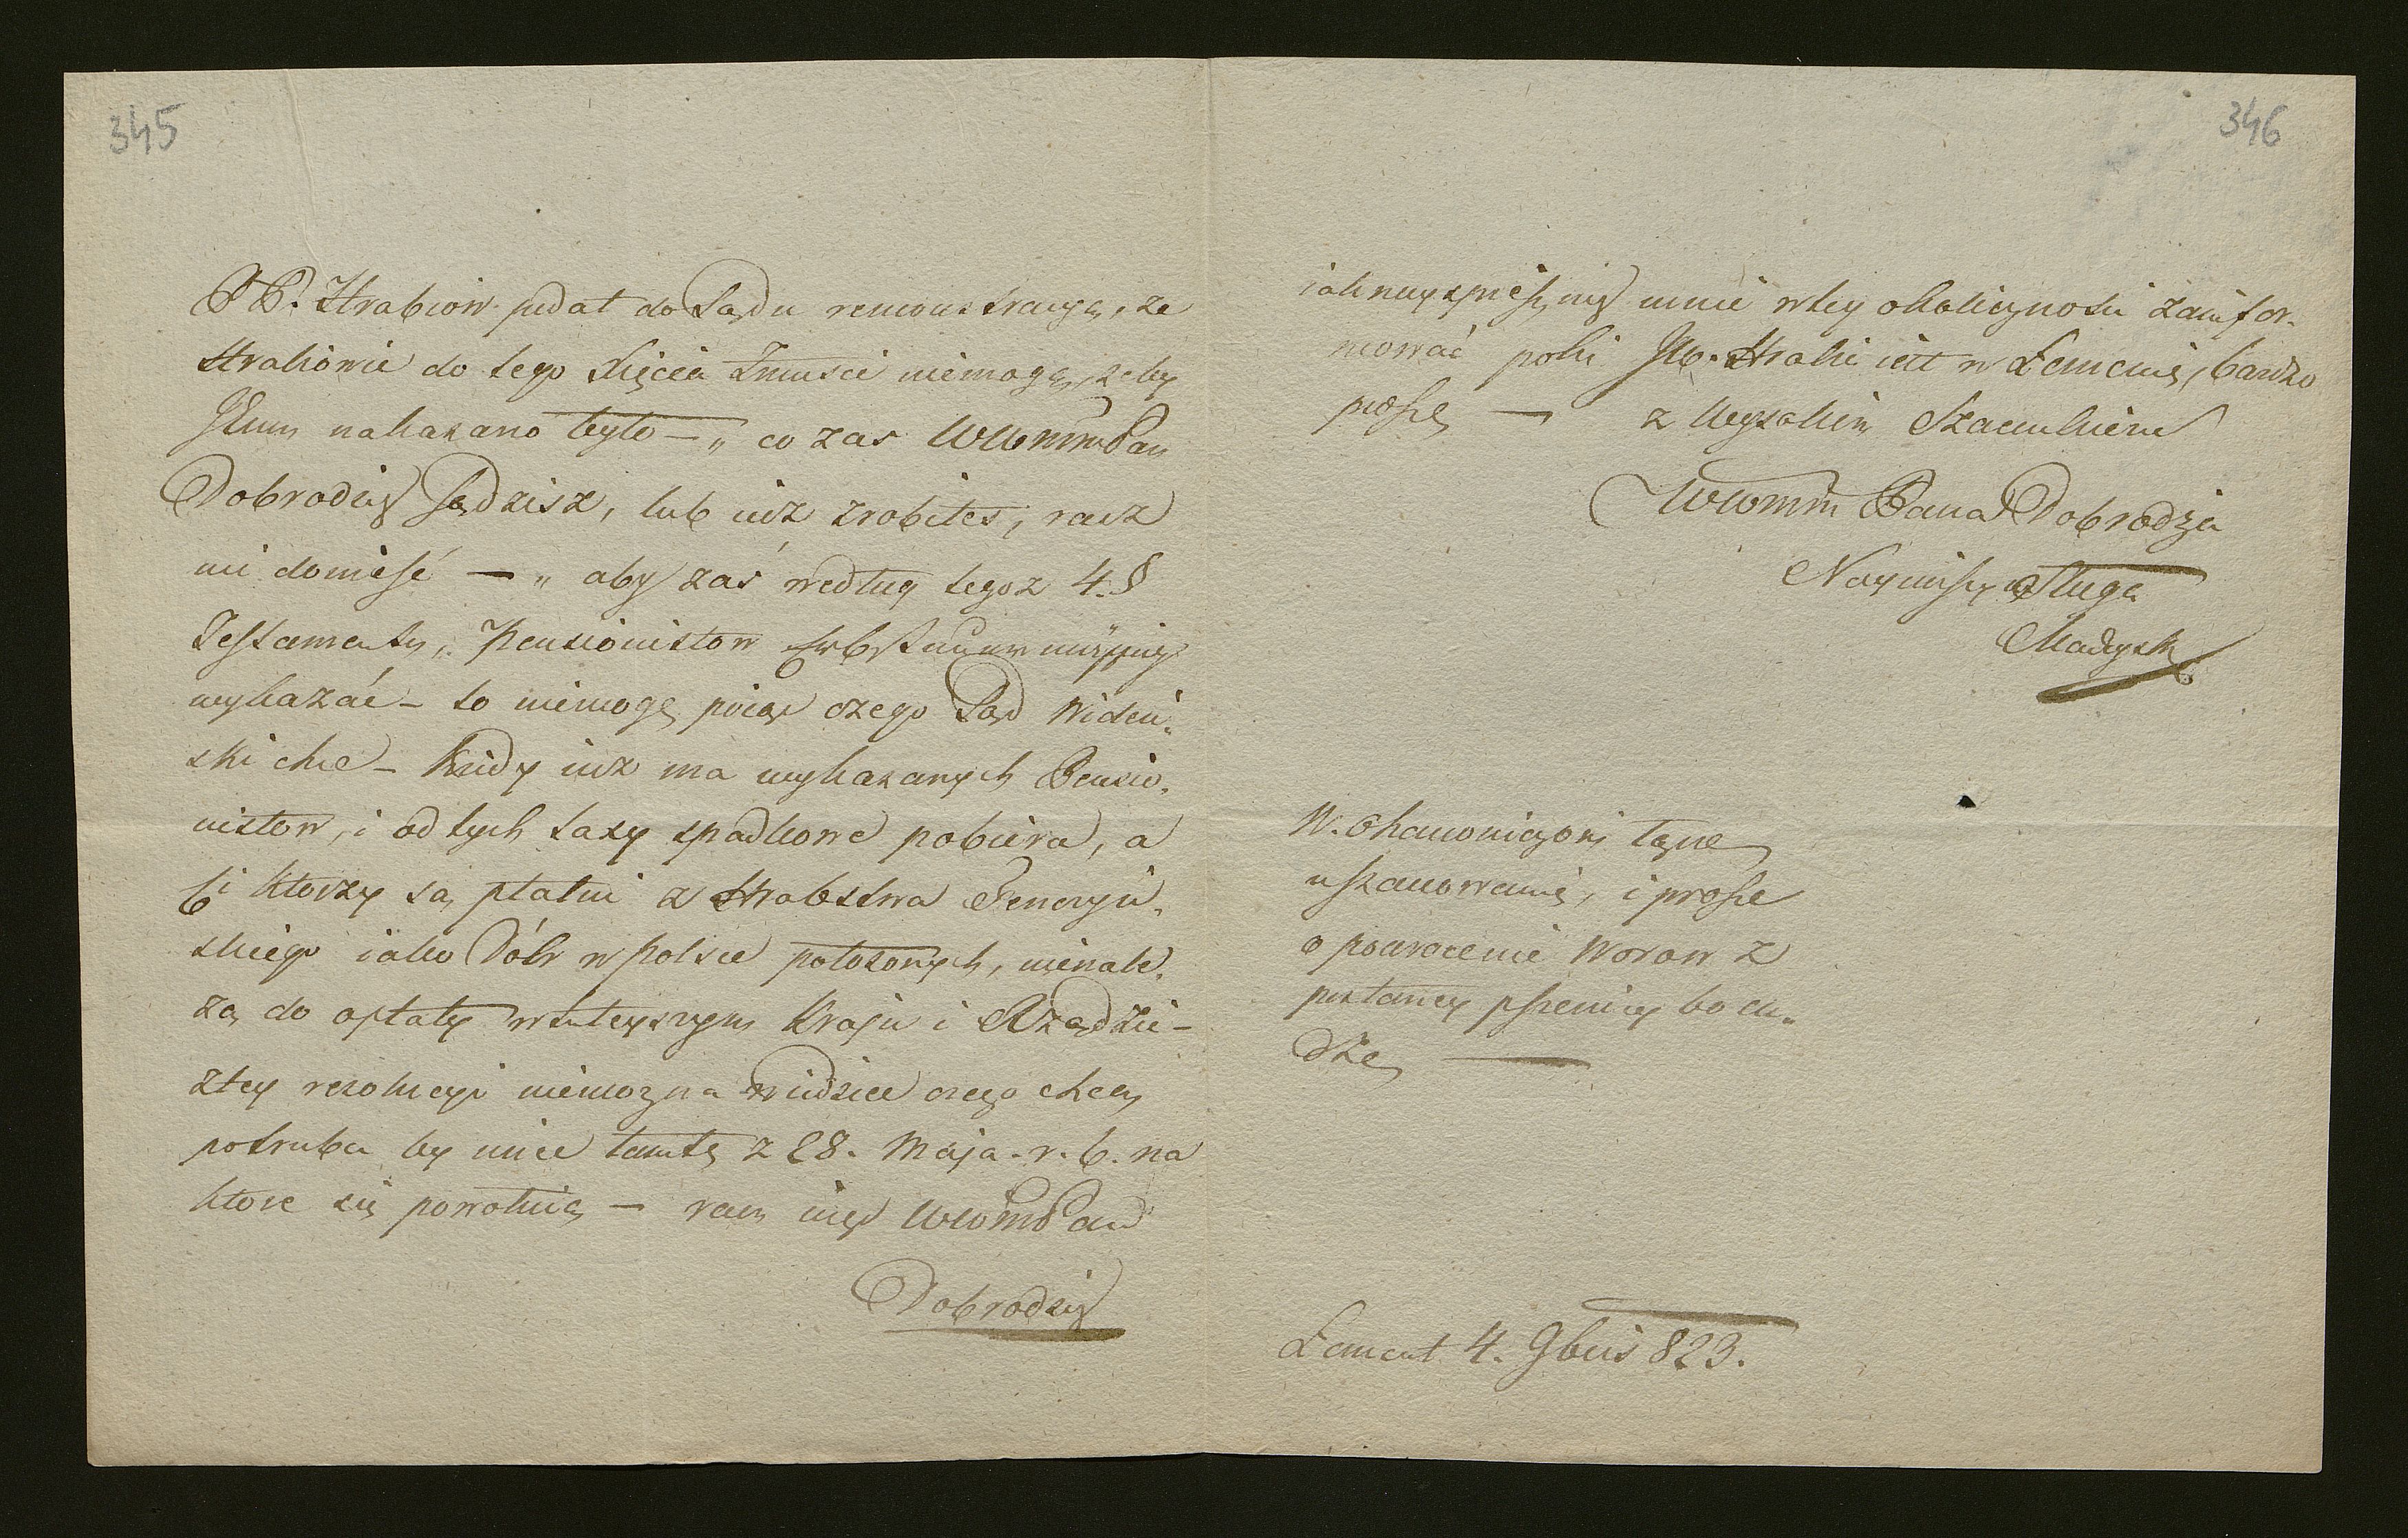 345
PP. Hrabiow podał do Sądu remonstracyą, że
Hrabiowie do tego Xięcia Zmusić niemogą, żeby
JEmu nakazano było — „ co zas WWMmPan
Dobrodziey sądzisz, lub iuż zrobiłeś, racz
mi donieść — „ aby zaś według tegoż 4. §
Testamentu, Pensionistow
wykazać – to niemogę poiąć czego Sąd Wideń„
ski chce – Kiedy iuż ma wykazanych Pensio„
nistow, i od tych taxy spadkowe pobiera, a
Ci ktorzy są płatni z Hrabstwa Tenczyń„
skiego iako Dóbr w Polsce położonych, nienale„
żą do opłaty w tuteyszym Kraju i Rządzie –
z tey rezolucyi niemożna wiedzieć czego chcą
potrzeba by mieć tamtę z 28. Maja. r. b. na
ktore się powołuią — racz więc WWMPan
Dobrodziey
346
iaknayspieszniey mnie w tey okoliczności zainfor„
mować poki JW. Hrabi iest w Łancucie, bardzo
proszę — z Wysokim Szacunkiem
WWMm Pana Dobrodzia
Nayniższy Sługa
Madeysk
W. Ekonomiczoni łączę
uszanowanie, i proszę
o powrocenie Worow z
posłaney pszenicy bo cu„
dze —
Łancut 4. 9bris 823.